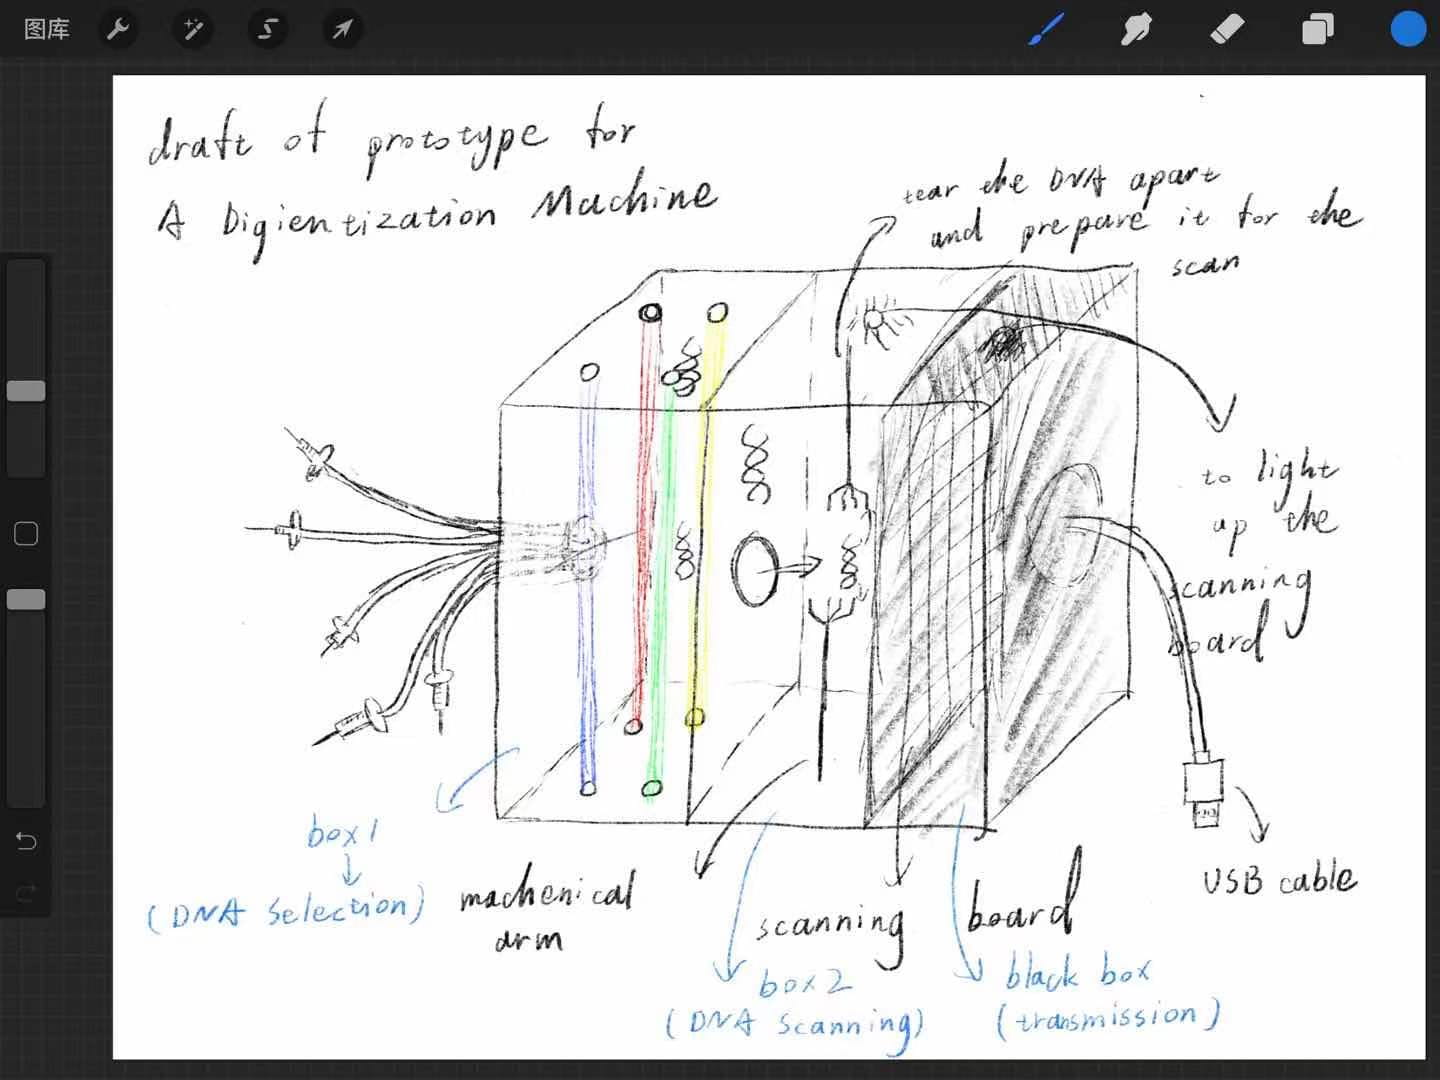 图库
draft of prototype for
A Digientization Machine
tear the DNA apart
and prepare it for the
scan
to light
up the
scanning
board
USB cable
box 1
(DNA selection)
machenical
arm
scanning board
box 2
(DNA scanning)
black box
(transmission)